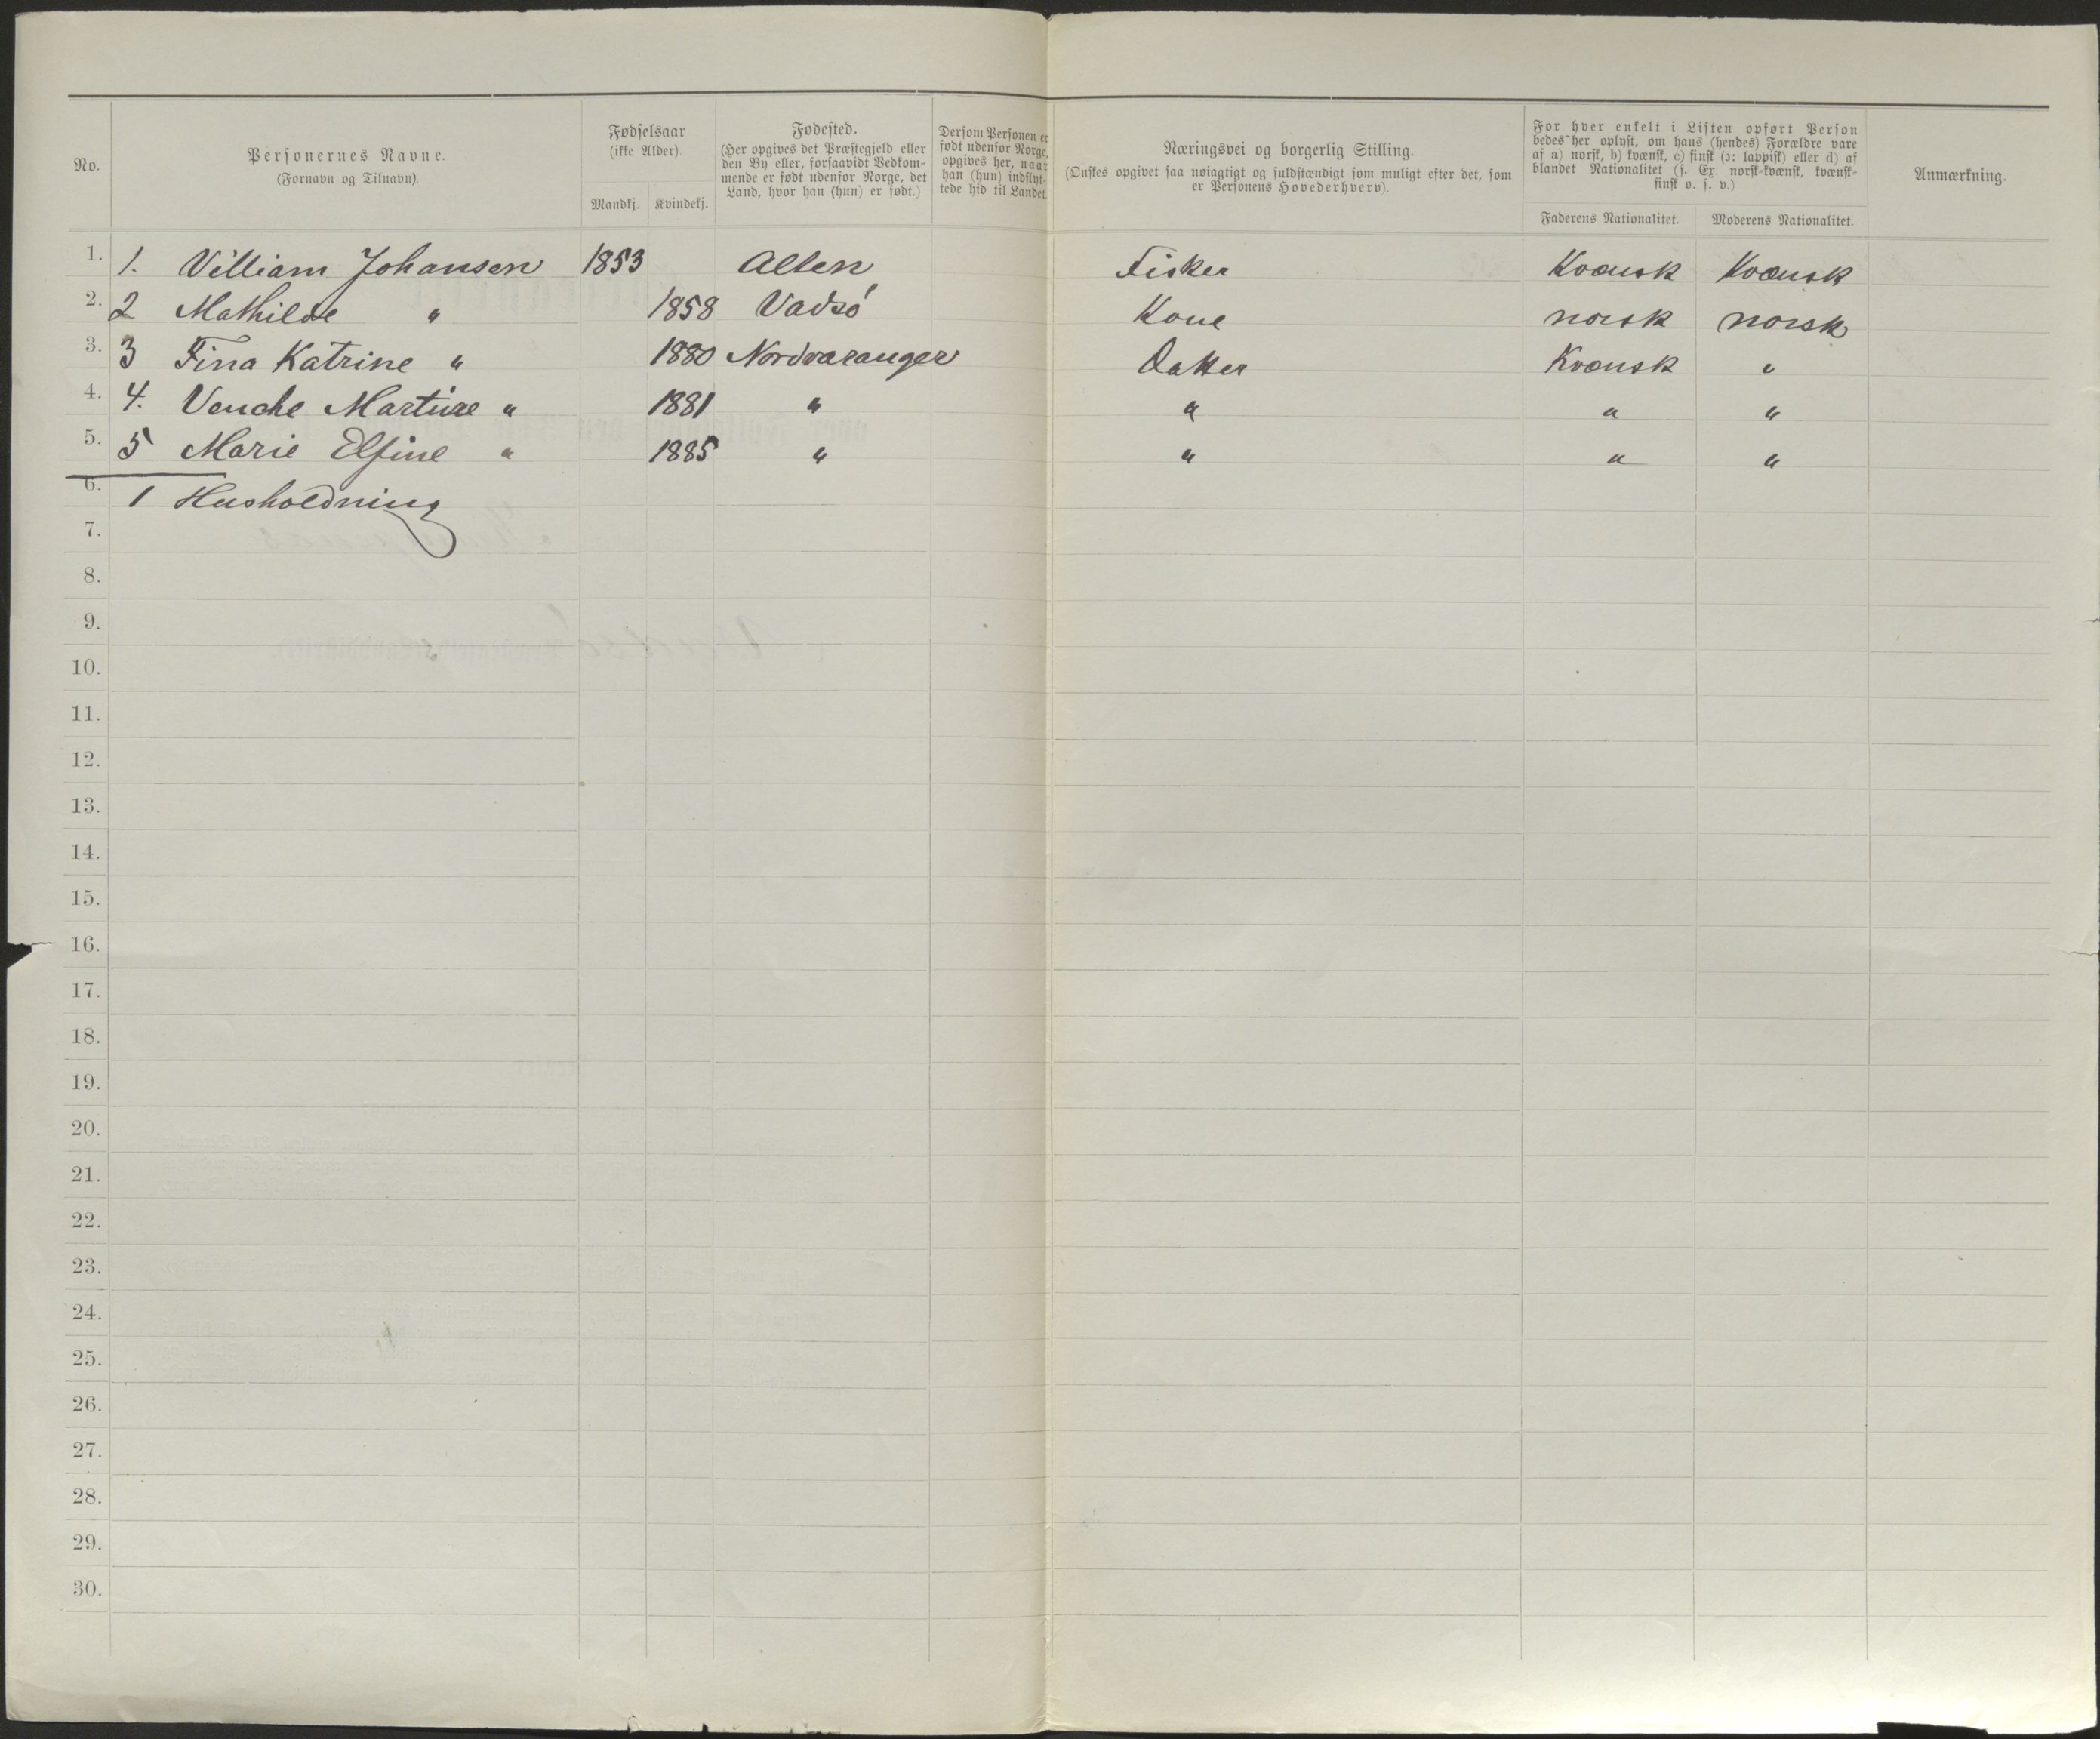 No.
Personernes Navne.
(Fornavn og Tilnavn).
Fødselsaar
(ikke Alder).
Mandkj. Kvindekj.
Fødested.
(Her opgives det Præstegjeld eller
den By eller, forsaavidt Vedkom-
mende er født udenfor Norge, det
Land, hvor han (hun) er født.)
Dersom Personen er
født udenfor Norge,
opgives her, naar
han (hun) indflyt-
tede hid til Landet.
Næringsvei og borgerlig Stilling.
(Ønskes opgivet saa nøiagtigt og fuldstændigt som muligt efter det, som
er Personens Hovederhverv).
For hver enkelt i Listen opført Person
bedes her oplyst, om hans (hendes) Forældre vare
af a) norsk, b) kvænsk, c) finsk (ɔ: lappisk) eller d) af
blandet Nationalitet (f. Ex. norsk-kvænsk, kvænsk-
finsk o. s. v.)
Faderens Nationalitet. Moderens Nationalitet.
Anmærkning.
1. 1. Villiam Johansen 1853 Alten Fisker Kvænsk Kvænsk
2. 2 Mathilde " 1858 Vadsó Kone norsk norsk
3. 3 Fina Katrine " 1880 Nordvaranger Datter Kvænsk "
4. 4. Venche Martine " 1881 " " " "
5. 5 Marie Elfine " 1885 " " " "
6. 1 Husholdning
7.
8.
9.
10.
11.
12.
13.
14.
15.
16.
17.
18.
19.
20.
21.
22.
23.
24.
25.
26.
27.
28.
29.
30.